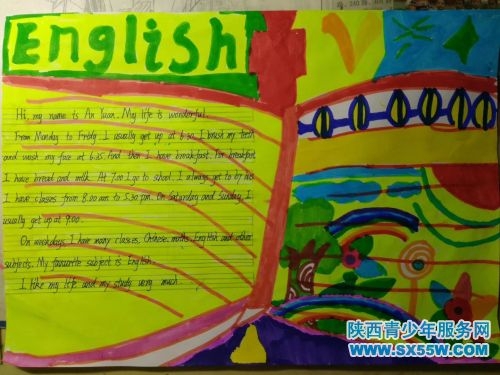 English
Hi, my name is An Yuan. My life is wonderful.
From Monday to Friday. I usually get up at 6:30. I brush my teeth
and wash my face at 6:35. And then I have breakfast. For breakfast
I have bread and milk. At 7:00 I go to school. I always get to by bus
I have classes from 8:00 am to 5:30 pm. On Saturday and Sunday, I
usually get up at 9:00.
On weekdays I have many classes. Chinese. maths. English and other
subjects. My favourite subject is English.
I like my life and my study very much.
陕西青少年服务网
www.sx55w.com